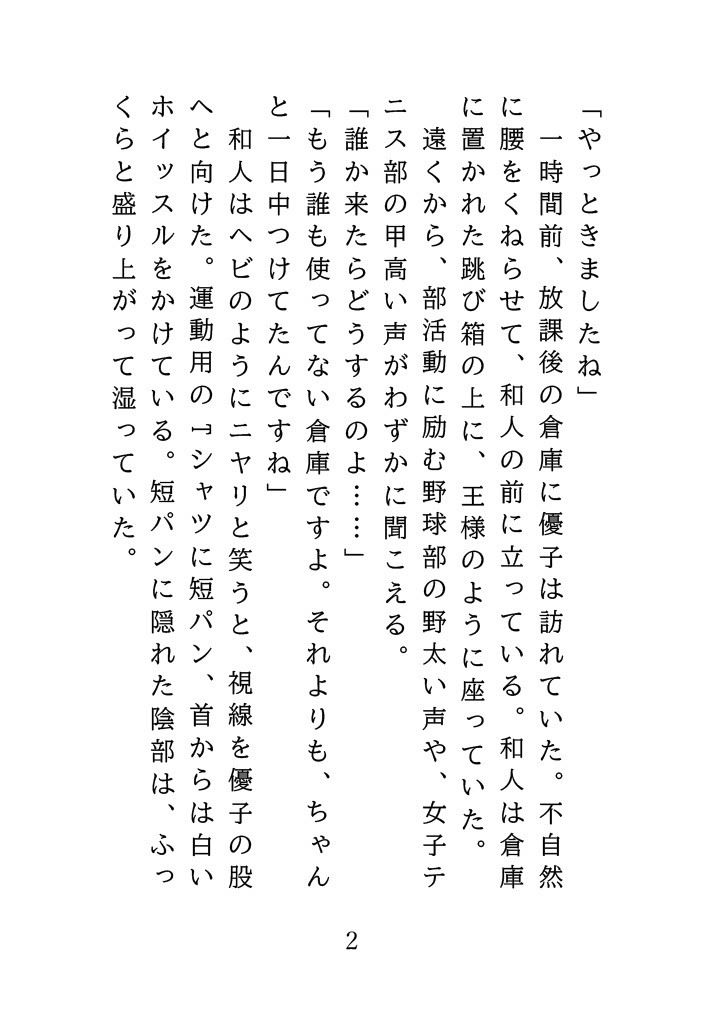 「やっときましたね」
　一時間前、放課後の倉庫に優子は訪れていた。不自然
に腰をくねらせて、和人の前に立っている。和人は倉庫
に置かれた跳び箱の上に、王様のように座っていた。
　遠くから、部活動に励む野球部の野太い声や、女子テ
ニス部の甲高い声がわずかに聞こえる。
「誰か来たらどうするのよ……」
「もう誰も使ってない倉庫ですよ。それよりも、ちゃん
と一日中つけてたんですね」
　和人はヘビのようにニヤリと笑うと、視線を優子の股
へと向けた。運動用のTシャツに短パン、首からは白い
ホイッスルをかけている。短パンに隠れた陰部は、ふっ
くらと盛り上がって湿っていた。
2